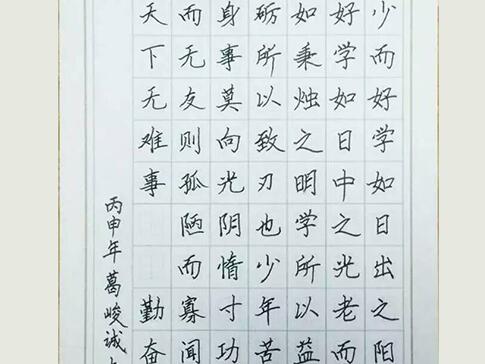 少而好学如日出之阳
好学如日中之光老而
如秉烛之明学所以益
砺所以致刃也少年苦
身事莫向光阴惰寸功
而无友则孤陋而寡闻
天下无难事 勤奋
丙申年葛峻诚